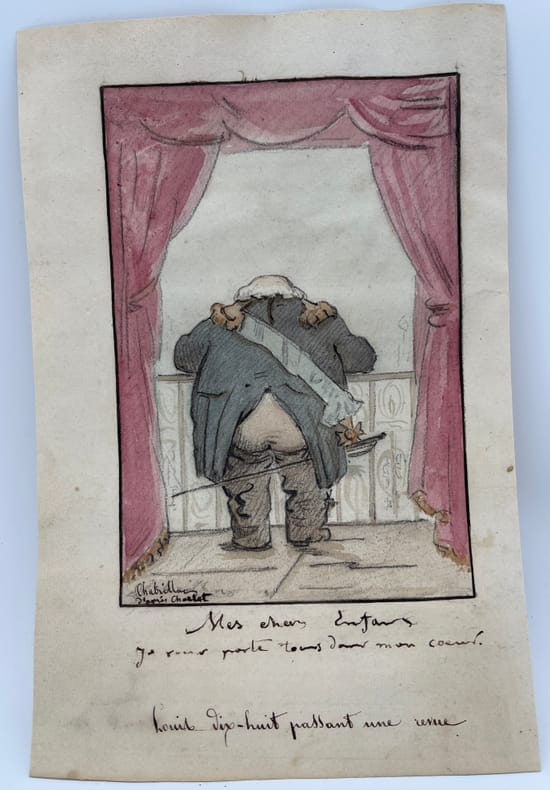 Chabrillac
d'après Charlet
Mes chers Enfans
Je vous porte tous dans mon coeur.
Louis dix-huit passant une revue